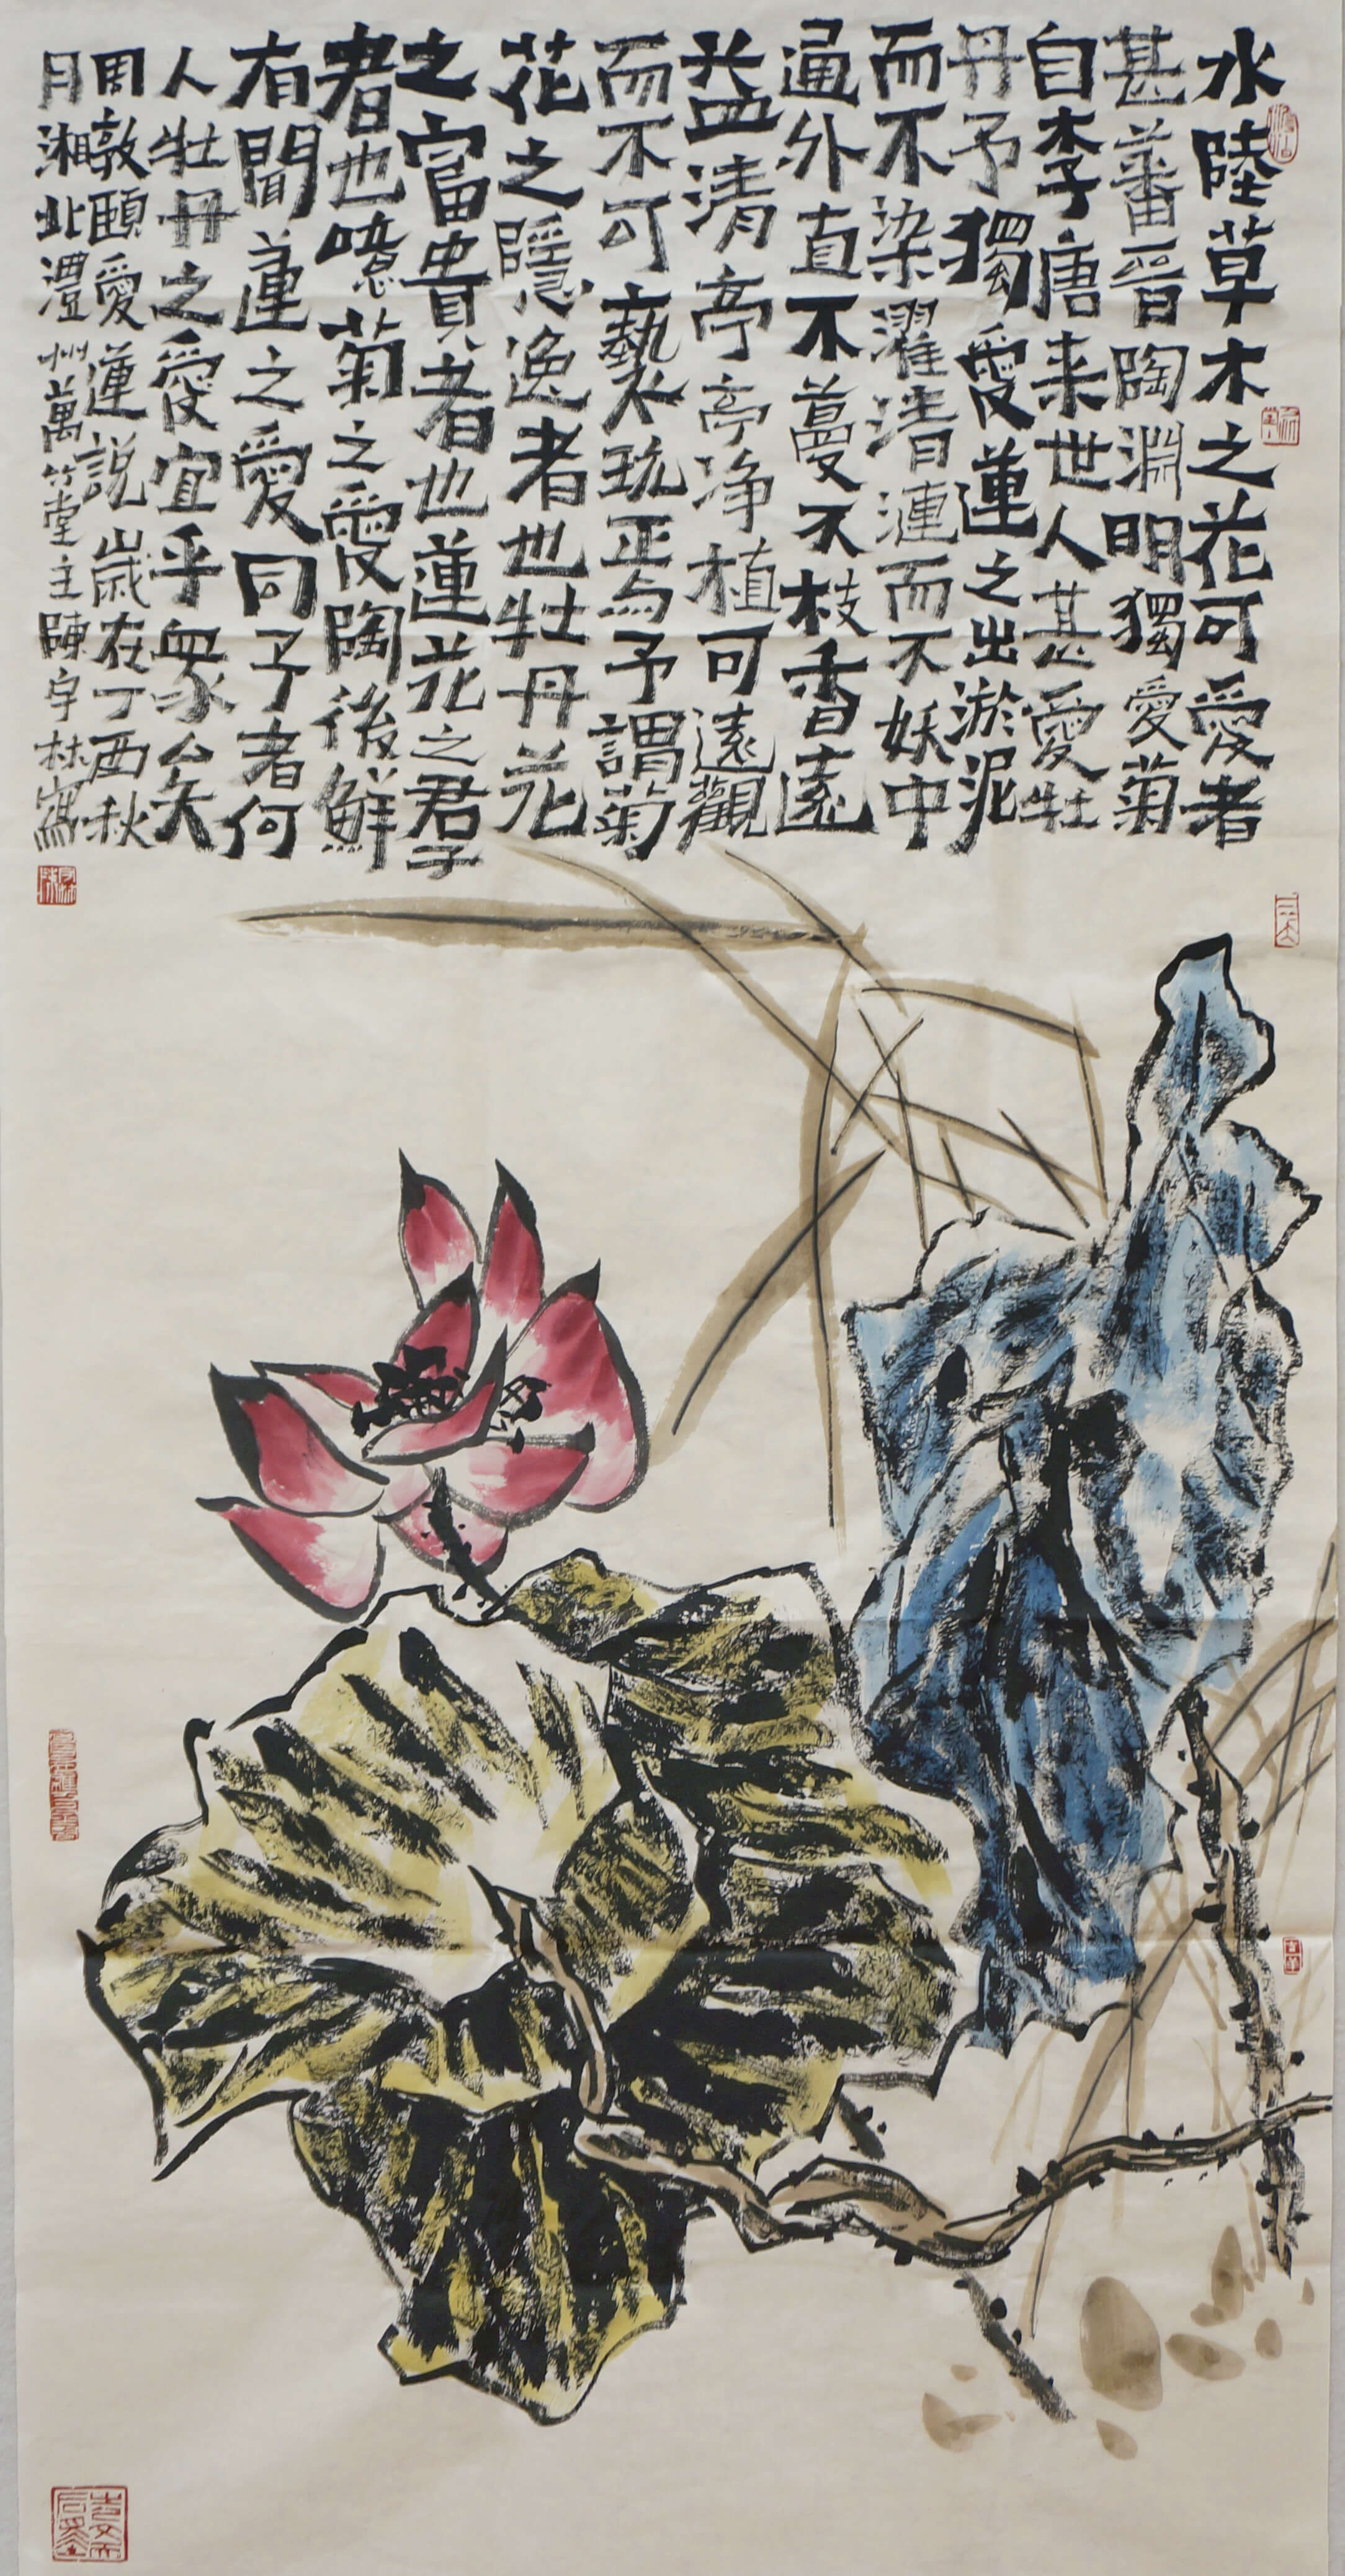 水陸草木之花可愛者
甚蕃晉陶淵明獨愛菊
自李唐来世人甚愛牡
丹予獨愛蓮之出淤泥
而不染濯清漣而不妖中
通外直不蔓不枝香遠
益清亭亭净植可遠觀
而不可褻玩焉予謂菊
花之隱逸者也牡丹花
之富貴者也蓮花之君子
者也噫菊之愛陶後鮮
有聞蓮之愛同予者何
人牡丹之愛宜乎衆矣
周敦頤愛蓮説歲在丁酉秋
月湘北澧州萬竹堂主陳宇林寫